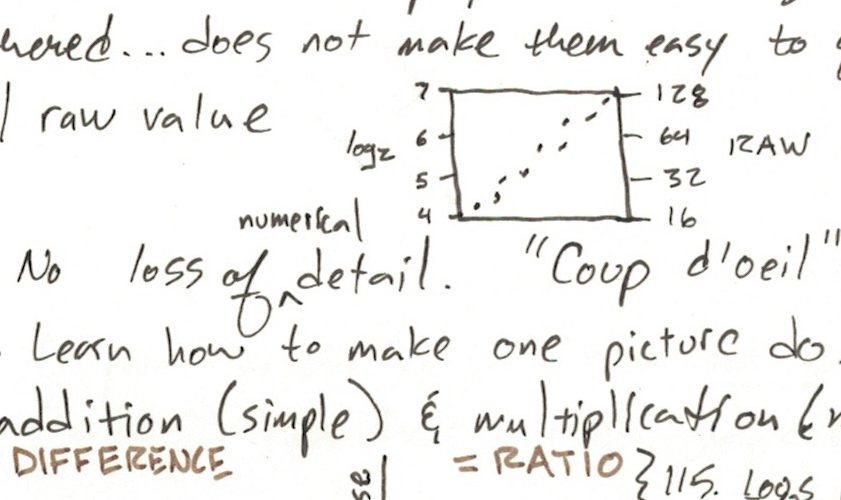 hered... does not make them easy to
raw value
7 128
log2 6 64 RAW
5 32
4 16
numerical
No loss of ^ detail. "Coup d'oeil"
Learn how to make one picture do
addition (simple) & multiplication (
DIFFERENCE = RATIO } 115. Logs
se